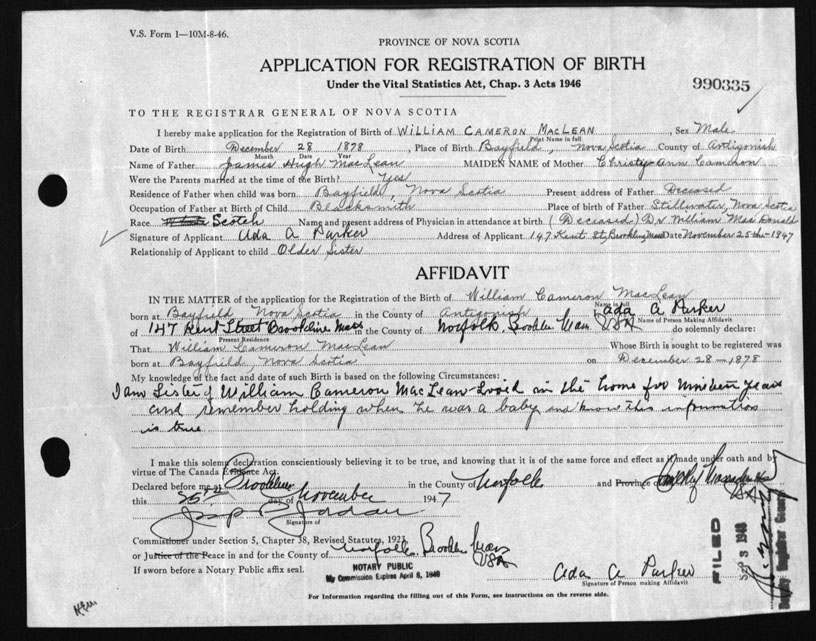 V.S. Form 1—10M-8-46.
PROVINCE OF NOVA SCOTIA
APPLICATION FOR REGISTRATION OF BIRTH
Under the Vital Statistics Act, Chap. 3 Acts 1946
990335
TO THE REGISTRAR GENERAL OF NOVA SCOTIA
I hereby make application for the Registration of Birth of WILLIAM CAMERON MACLEAN, Sex Male
Print Name in full
Date of Birth December 28 1878, Place of Birth Bayfield, Nova Scotia County of Antigonish
Month Date Year
Name of Father James Hugh MacLean MAIDEN NAME of Mother Christy Ann Cameron
Were the Parents married at the time of the Birth? Yes
Residence of Father when child was born Bayfield, Nova Scotia Present address of Father Deceased
Occupation of Father at Birth of Child Blacksmith Place of birth of Father Stillwater, Nova Scotia
Race Scotch Name and present address of Physician in attendance at birth (Deceased) Dr William MacDonald
Signature of Applicant Ada A Parker Address of Applicant 147 Kent St, Brookline Mass Date November 25th 1947
Relationship of Applicant to child Older Sister
AFFIDAVIT
IN THE MATTER of the application for the Registration of the Birth of William Cameron MacLean
Name in full
born at Bayfield Nova Scotia in the County of Antigonish I, Ada A Parker
Name of Person Making Affidavit
of 147 Kent Street Brookline Mass in the County of Norfolk, Brookline Mass USA do solemnly declare:
Present Residence
That William Cameron MacLean Whose Birth is sought to be registered was
born at Bayfield, Nova Scotia on December 28—1878
My knowledge of the fact and date of such Birth is based on the following Circumstances:
I am Sister of William Cameron MacLean - Lived in the home for nineteen years
and remember holding when he was a baby and know this information
is true
I make this solemn declaration conscientiously believing it to be true, and knowing that it is of the same force and effect as if made under oath and by
virtue of The Canada Evidence Act.
Declared before me at Brookline in the County of Norfolk and Province of
this 25th day of November 1947
Signature of
Commissioner under Section 5, Chapter 38, Revised Statutes, 1923
or Justice of the Peace in and for the County of Norfolk Brookline Mass USA
If sworn before a Notary Public affix seal.
NOTARY PUBLIC
My Commission Expires April 8, 1949
Ada A Parker
Signature of Person making Affidavit
For Information regarding the filling out of this Form, see instructions on the reverse side.
FILED
SEP 3 1948
Deputy Registrar General